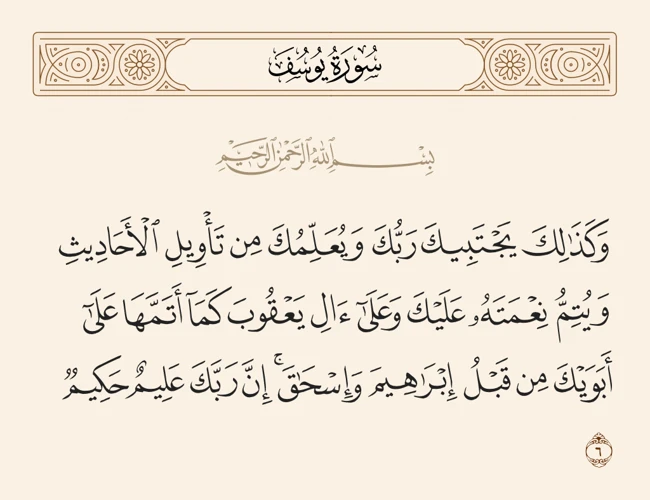 سُورَةُ يُوسُفَ
بِسْمِ ٱللَّهِ ٱلرَّحْمَٰنِ ٱلرَّحِيمِ
وَكَذَٰلِكَ يَجْتَبِيكَ رَبُّكَ وَيُعَلِّمُكَ مِن تَأْوِيلِ ٱلْأَحَادِيثِ
وَيُتِمُّ نِعْمَتَهُۥ عَلَيْكَ وَعَلَىٰٓ ءَالِ يَعْقُوبَ كَمَآ أَتَمَّهَا عَلَىٰٓ
أَبَوَيْكَ مِن قَبْلُ إِبْرَٰهِيمَ وَإِسْحَٰقَ ۚ إِنَّ رَبَّكَ عَلِيمٌ حَكِيمٌ
٦